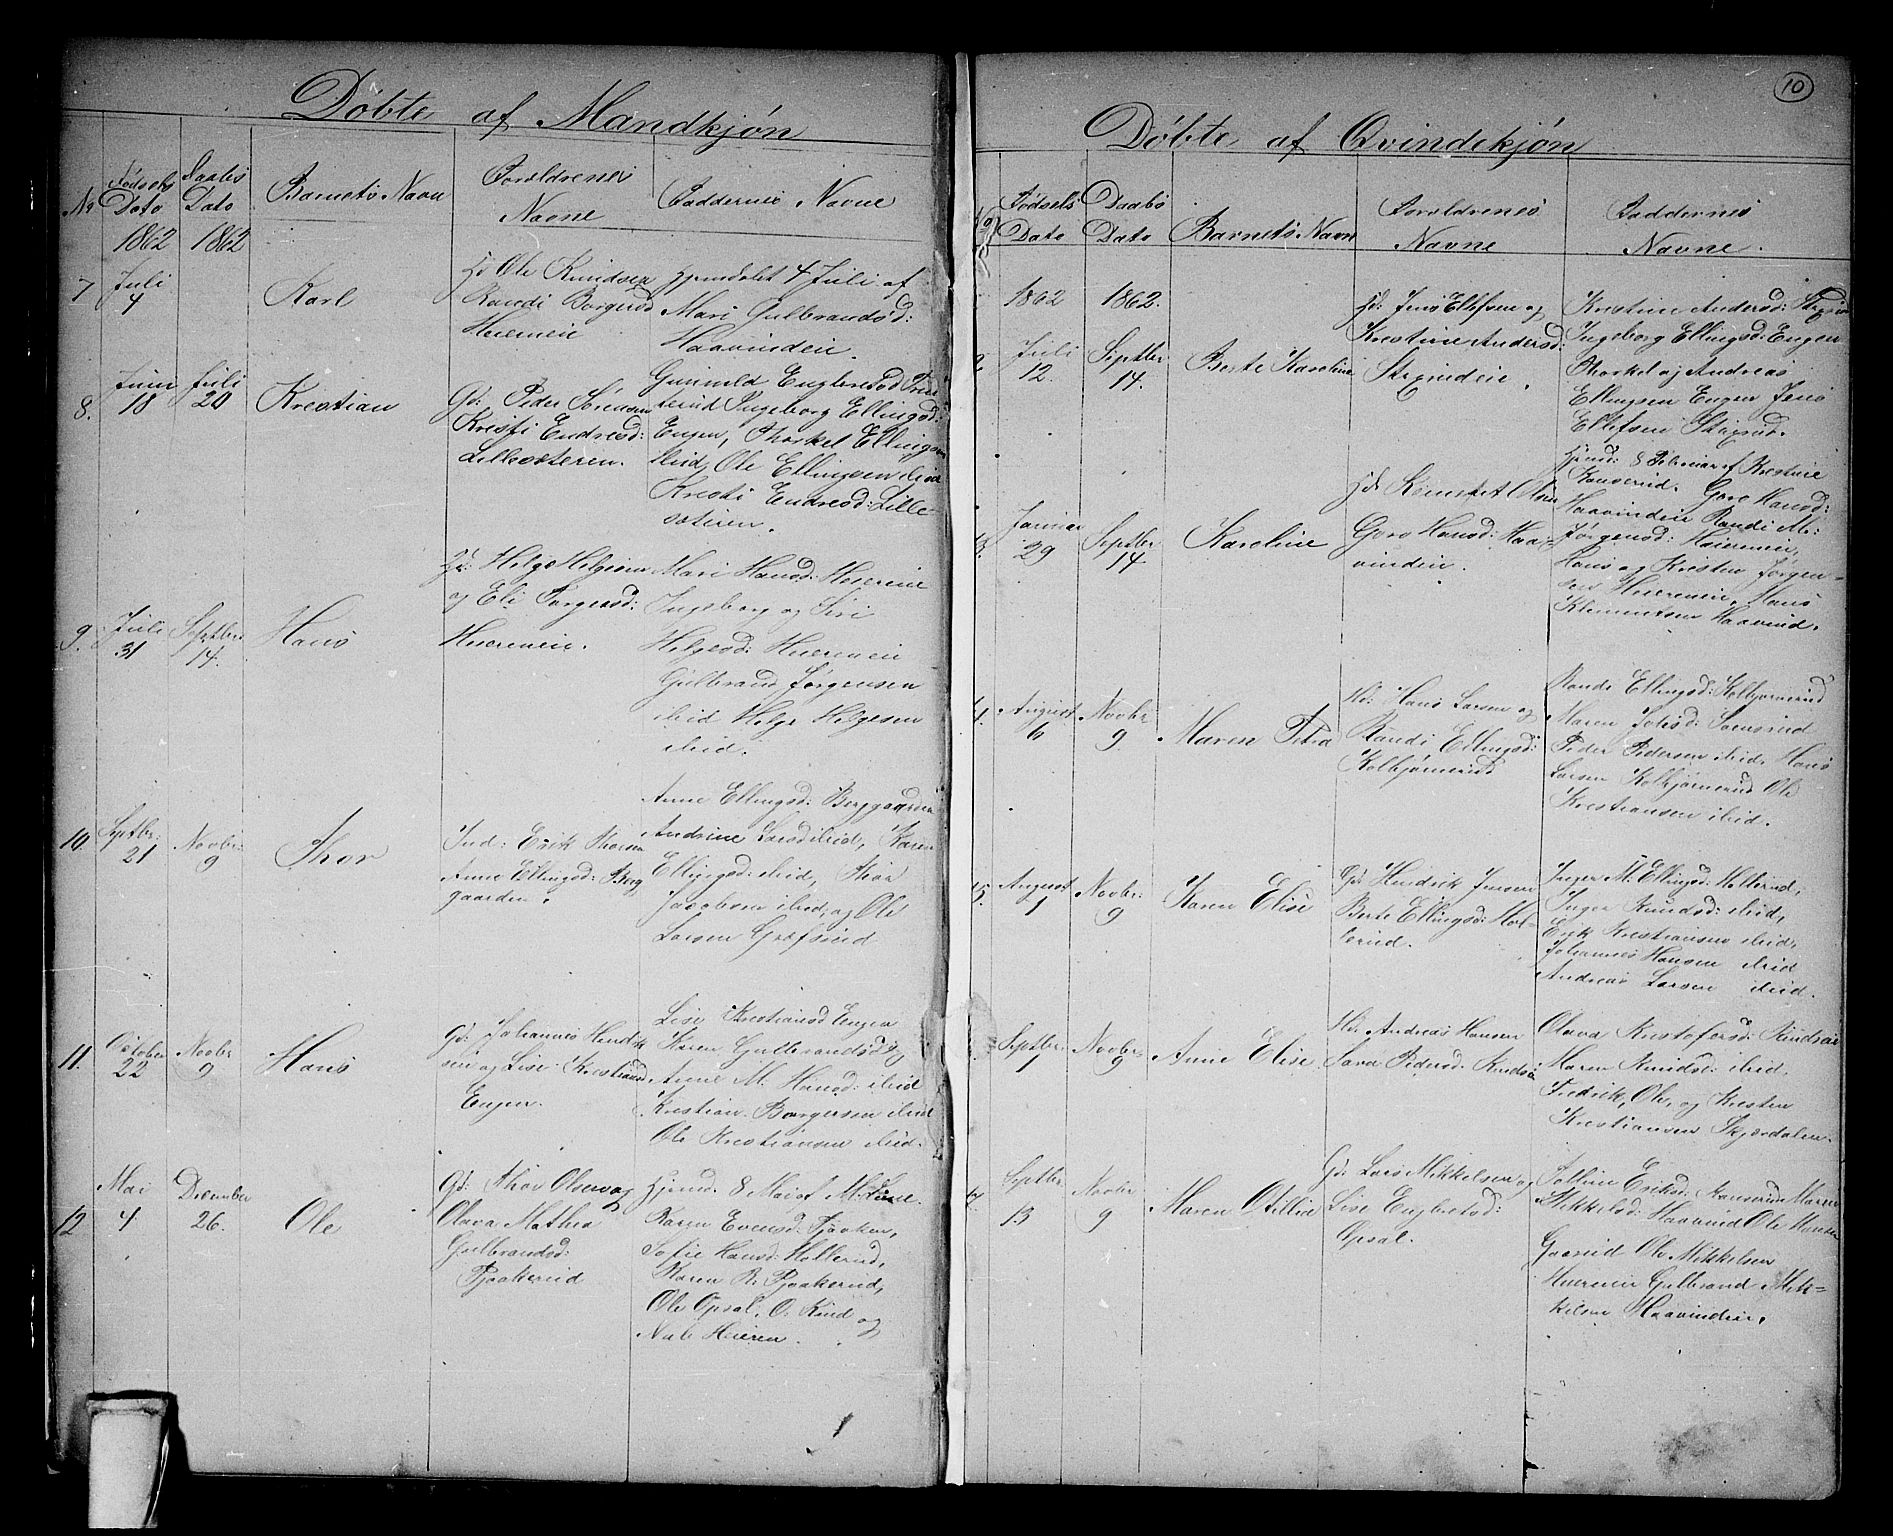 Døbte af Mandkjøn
No
Fødsels Dato 1862
Daabs Dato 1862
Barnets Navn
Foreldrenes Navne
Faddernes Navne
7
Juli 4
Karl
Hd Ole Knudsen
Randi Borgersd
Heiereneie
Hjemdøbt 4 Juli af
Mari Gulbrandsd:
Haavindeie.
8.
Juni 18
Juli 20
Krestian
Gd: Peder Sørensen
Kristi Endresd:
Lillesæteren.
Gunild Englebretsd
Ingeborg Ellingsd:
Engen, Thorkel Ellingsen
ibid, Ole Ellingsen ibid
Kresti Endresd: Lille-
sæteren.
9.
Juli 31
Septbr 14.
Hans
Helge Helgesen
og Eli Torgersd:
Heiereneie.
Mari Hansd: Heiereneie
Ingeborg og Siri
Helgesd: Heiereneie
Gulbrand Jørgensen
ibid Helge Helgesen
ibid.
10.
Septbr: 21
Novbr: 9
Thor
Ind: Erik Thorsen
Anne Ellingsd: Berg
gaarden.
Anne Ellingsd: Berggaarden
Andrine Larsd ibid, Karen
Ellingsd: ibid, Thor
Jacobsen ibid, og Ole
Larsen Græfsrud
11.
October 22
Novbr 9
Hans
Gd: Johannes Hendrik
sen og Lise Krestiansd
Engen.
Lise Krestiansd Engen
Karen Gulbrandsd og
Anne M. Hansd: ibid
Krestian Borgersen ibid
Ole Krestiansen ibid.
12
Mai 4
December 26.
Ole
Gd: Thor Olsen og
Olava Mathea
Gulbrandsd:
Pjaakerud
Hjemd. 8 Mai af M.
Karen Evensd: Pjaaker,
Sofie Hansd: Hollerud,
Karen R. Pjaakerud,
Ole Opsal, O. Rud og
Heieren.
10
Døbte af Qvindekjøn
No
Fødsels Dato
Daabs Dato
Barnets Navn
Foreldrenes Navne
Faddernes Navne.
1862
1862.
Juli 12.
Septbr 14.
Berte Karoline
Hd: Jens Ellefsen og
Krestine Andersd:
Kristine Andersd:
Ingeborg Ellingsd: Engen
Thorkel og Andreas
Ellingsen Engen Jens
Ellefsen
Januar 29
Septbr 14
Karoline
Hd: Klemet Olsen
Goro Hansd: Haa-
vindeie.
Hjemd: 8 Februar af Krestine
Goro Hansd:
Haavindeie Randi M:
Jørgensd: Heiereneie,
Hans og Kresten Jørgen-
sen Heiereneie, Hans
Klemetsen Haavind.
August 6
Novbr 9
Maren Petra
Hd: Hans Larsen og
Randi Ellingsd:
Kolbjørnerud
Randi Ellingsd: Kolbjørnerud
Maren
Peder Pedersen ibid, Hans
Larsen Kolbjørnerud Ole
Krestiansen ibid.
August 1
Novbr: 9
Karen Elise
Gd: Hendrik Jensen
Berte Ellingsd: Hol-
lerud.
Inger M. Ellingsd: Hollerud,
Inger Knudsd: ibid,
Erik Krestiansen ibid,
Johannes Hansen ibid
Andreas Larsen ibid.
Septbr. 1
Novbr 9
Anne Elise
Hd: Andreas Hansen
Sara Pedersd:
Olava Kristofersd:
Maren Knudsd: ibid.
Fredrik, Ole, og Kresten
Krestiansen Skjørdalen.
Septbr 13
Novbr 9
Maren Otillie
Gd: Lars Mikkelsen og
Lise Englebretsd:
Opsal.
Eriksd: Maren
Mikkelsd: Haavind Ole Hansen
Ole Mikkelsen
Heiereneie Gulbrand Mik-
kelsen Haavindeie.